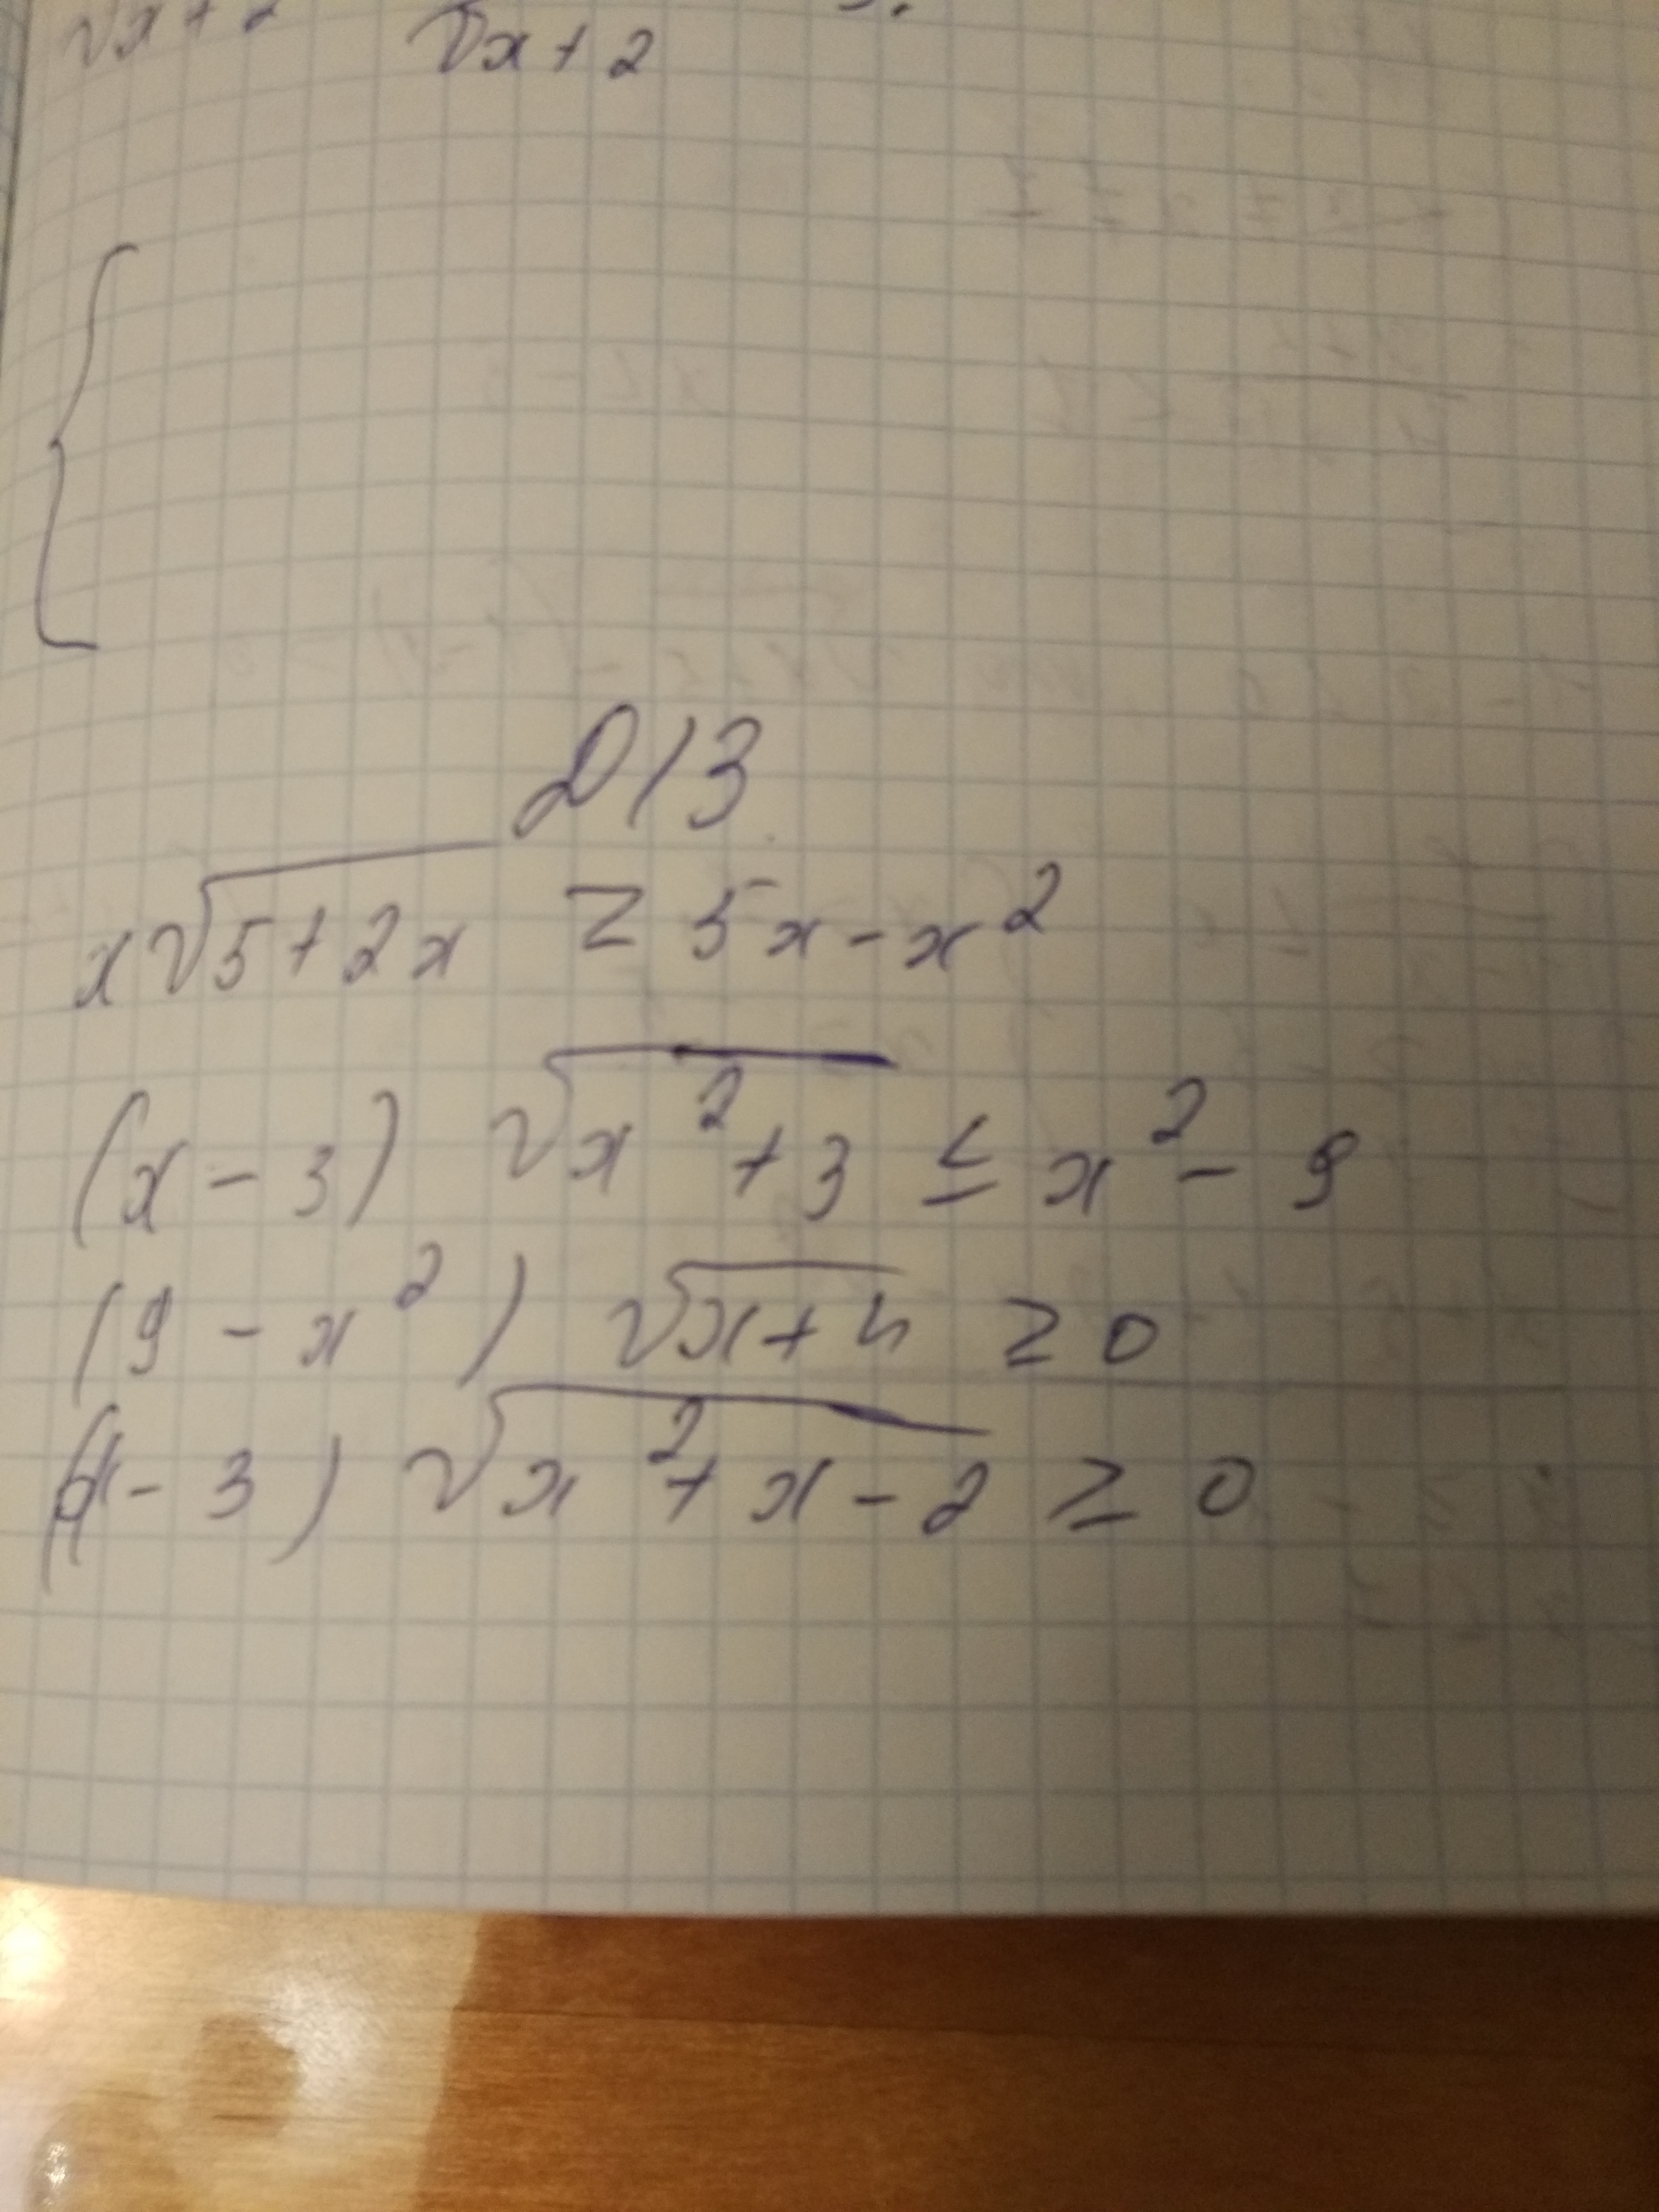 √x+2 √x+2
Д/З
x√5+2x ≥ 5x-x²
(x-3) √x²+3 ≤ x²-9
(9-x²) √x+4 ≥ 0
(x-3) √x²+x-2 ≥ 0